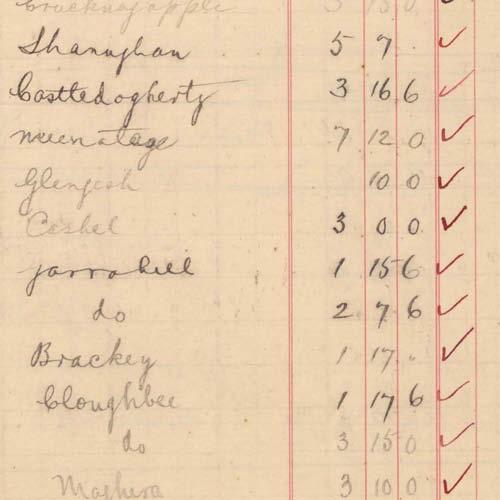 Crocknagapple 3 15 0 ✓
Shanaghan 5 7 . ✓
Castledogherty 3 16 6 ✓
meenatage 7 12 0 ✓
Glengesh 10 0 ✓
Cashel 3 0 0 ✓
yarrahill 1 15 6 ✓
do 2 7 6 ✓
Brackey 1 17 . ✓
Cloughbee 1 17 6 ✓
do 3 15 0 ✓
Maghera 3 10 0 ✓